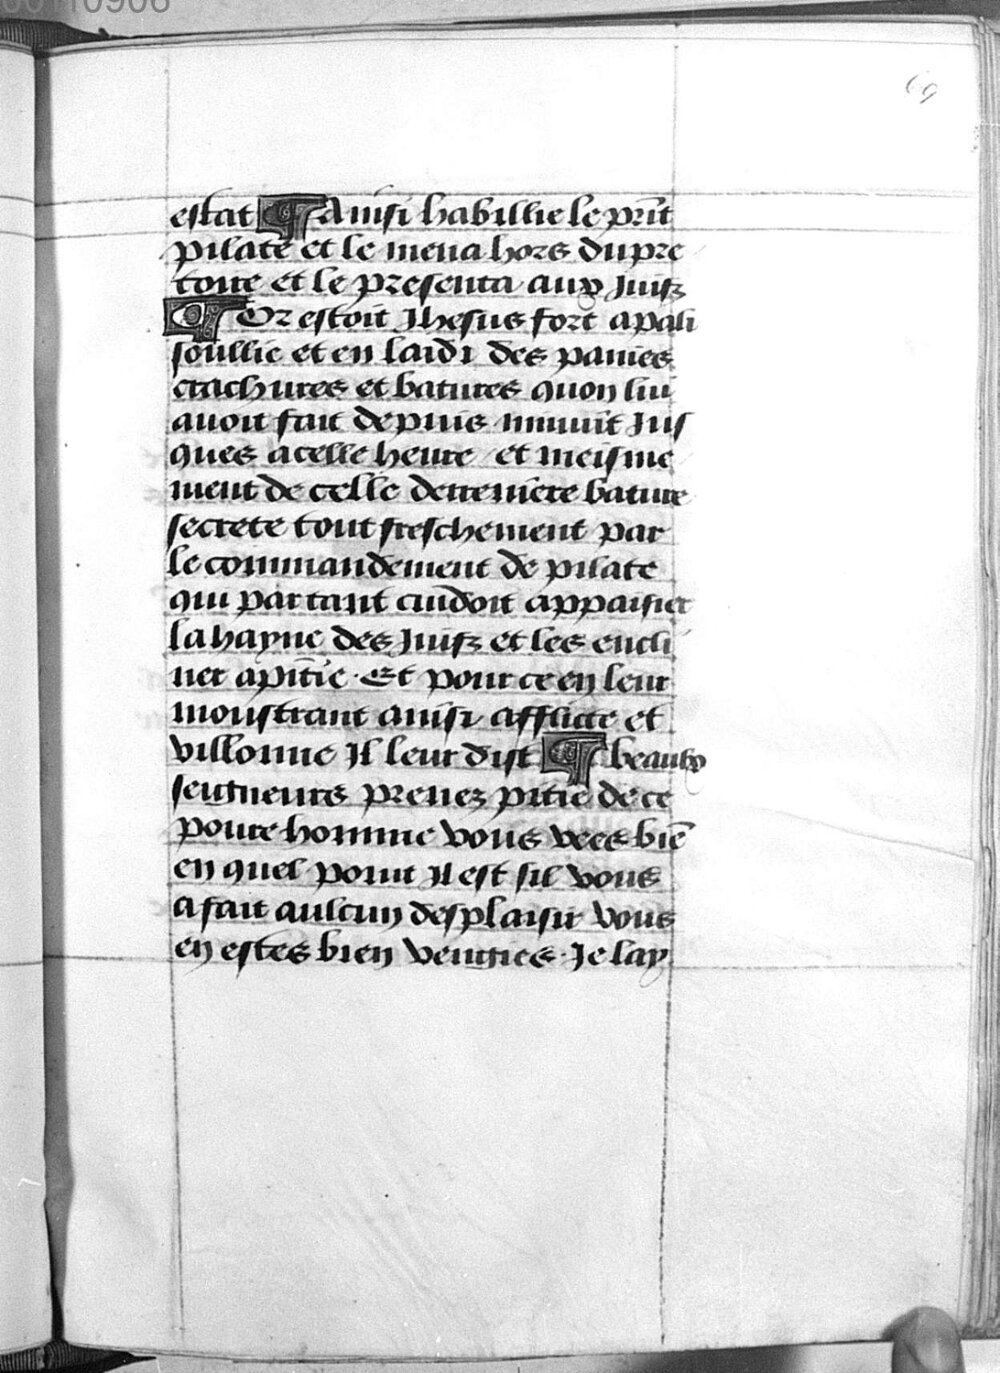 69
estat ¶ Ainsi habillie le prīt
pilate et le mena hors du pre
toire et le presenta aux juifz
¶ Or estoit Jhesus fort apali
soullie et en laidi des paines
crachures et batures quon luī
auoit fait depuis minuit Jus
ques a celle heure et meisme
ment de celle derreniere bature
secrete tout freschement par
le commandement de pilate
qui par tant cuidoit appaisier
la hayne des Juifz et les encli
ner a pitīe · Et pour ce en leur
monstrant ainsi afflicte et
villonne Il leur dist ¶ beaulx
seigneurs prenez pitie de ce
poure homme vous vees biē
en quel point il est sil vous
a fait aulcun desplaisir vous
en estes bien vengies · Je lay